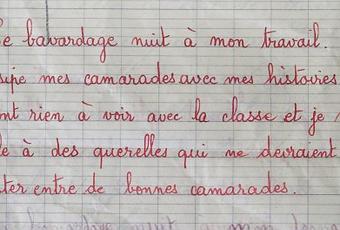 e bavardage nuit à mon travail.
sipe mes camarades avec mes histoires
nt rien à voir avec la classe et je
e à des querelles qui ne devraient
ter entre de bonnes camarades.